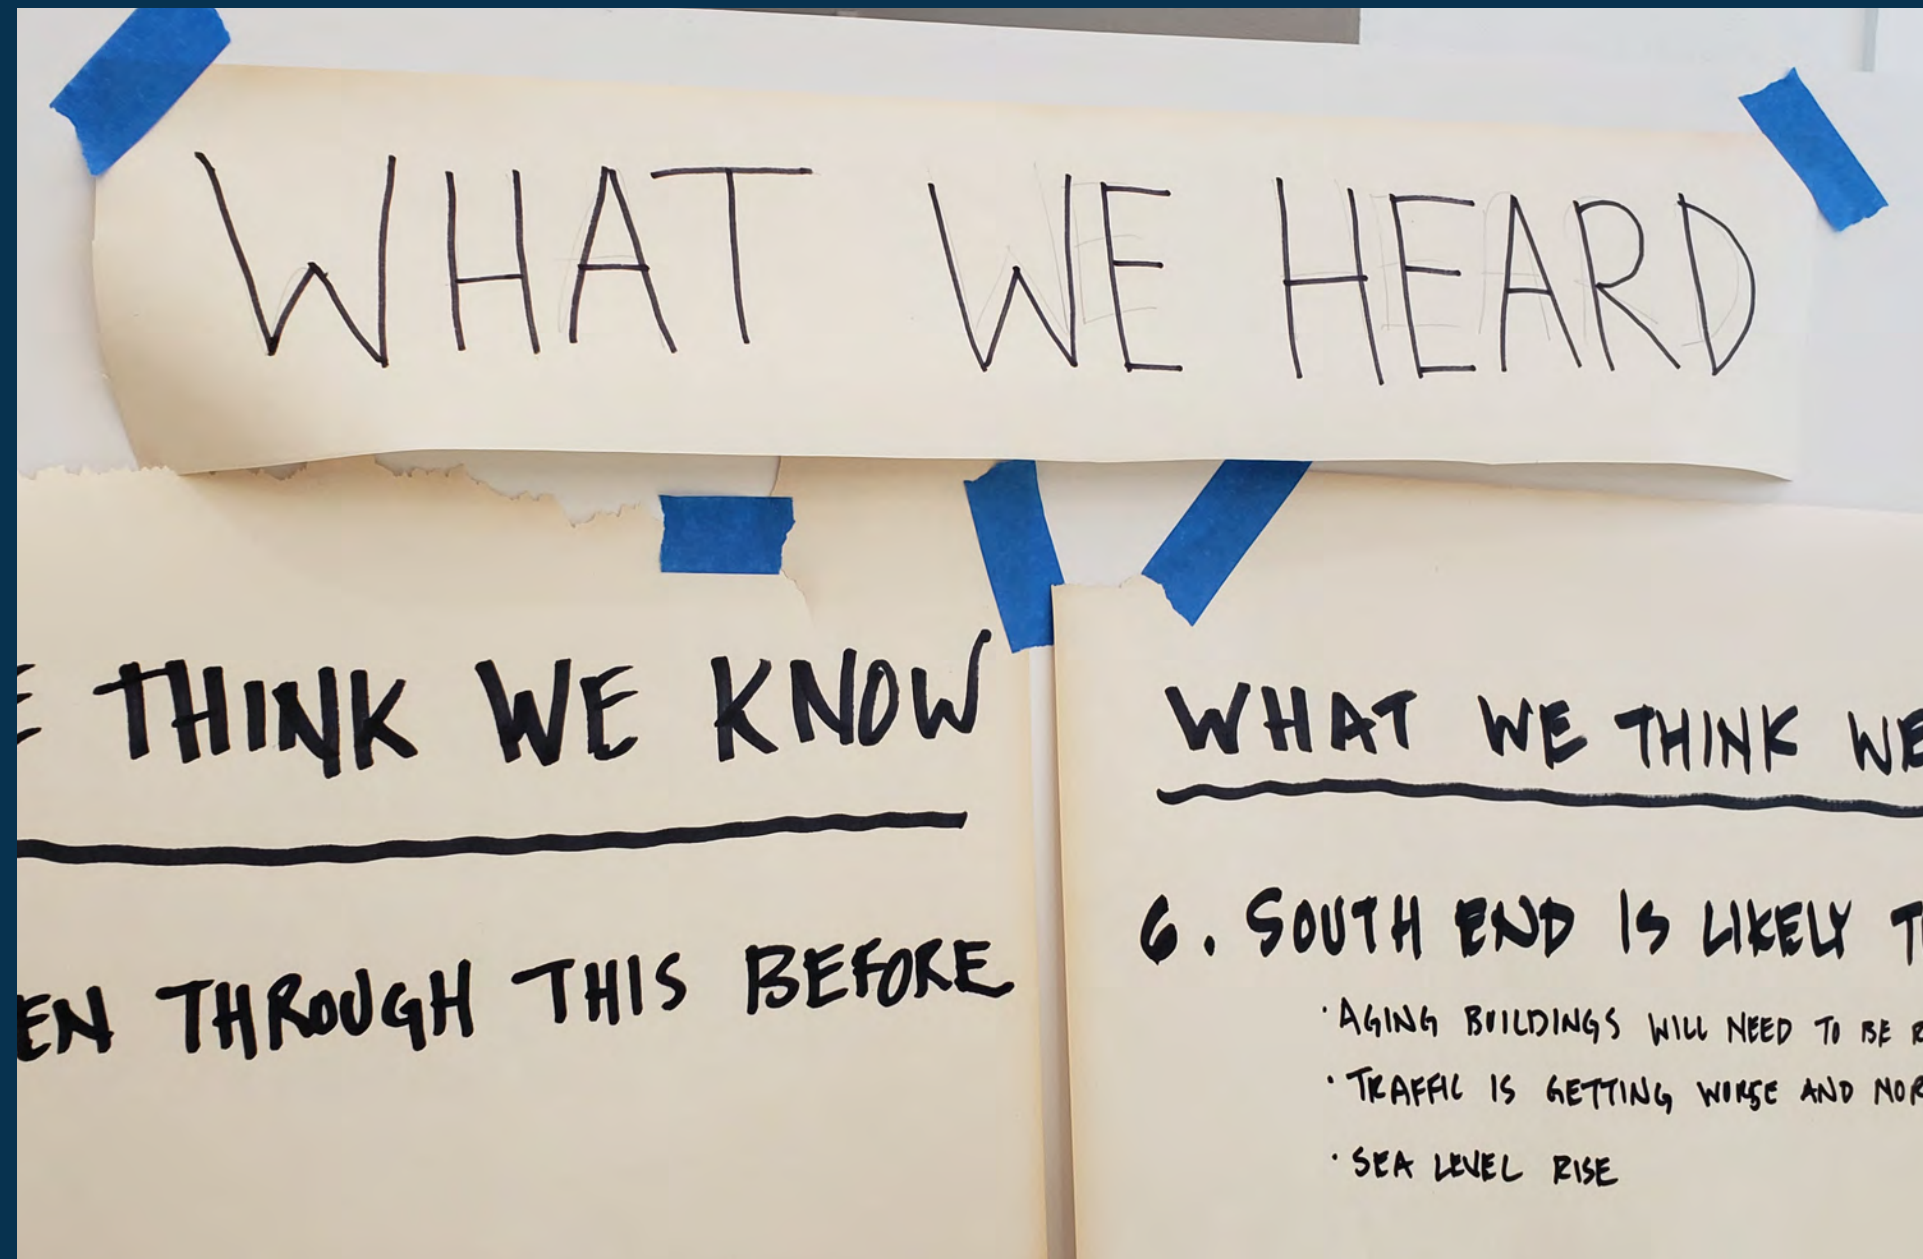 WHAT WE HEARD
THINK WE KNOW
THROUGH THIS BEFORE
WHAT WE THINK WE
6. SOUTH END IS LIKELY
· AGING BUILDINGS WILL NEED TO BE
· TRAFFIC IS GETTING WORSE AND
· SEA LEVEL RISE